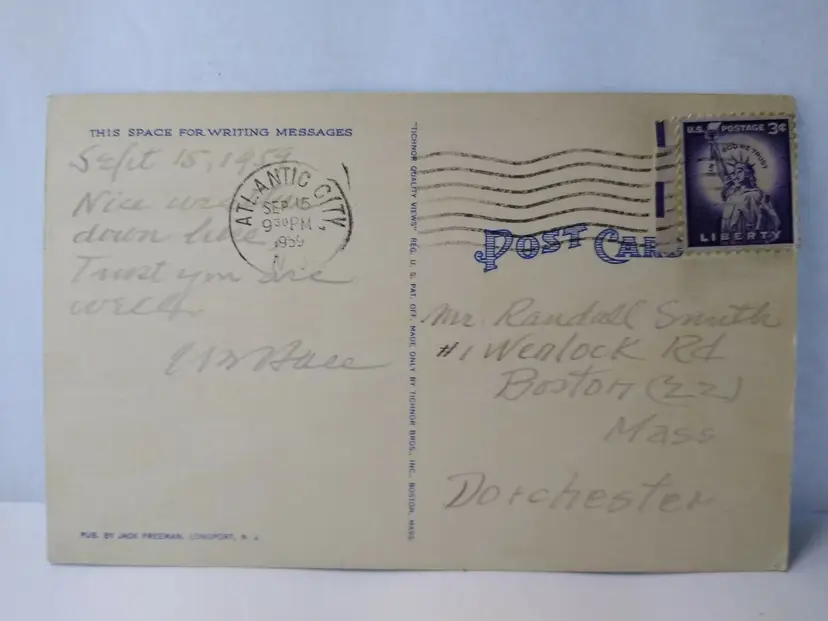 THIS SPACE FOR WRITING MESSAGES
Sept 15, 1959
Nice
down here
Trust you are
well
"TICHNOR QUALITY VIEWS" REG. U. S. PAT. OFF. MADE ONLY BY TICHNOR BROS., INC., BOSTON, MASS.
PUB. BY JACK FREEMAN, LONGPORT, N. J.
ATLANTIC CITY
SEP 15
9 30 PM
1959
N
U.S. POSTAGE 3¢
IN GOD WE TRUST
LIBERTY
POST CARD
Mr. Randall Smith
#1 Wenlock Rd
Boston (22)
Mass
Dorchester